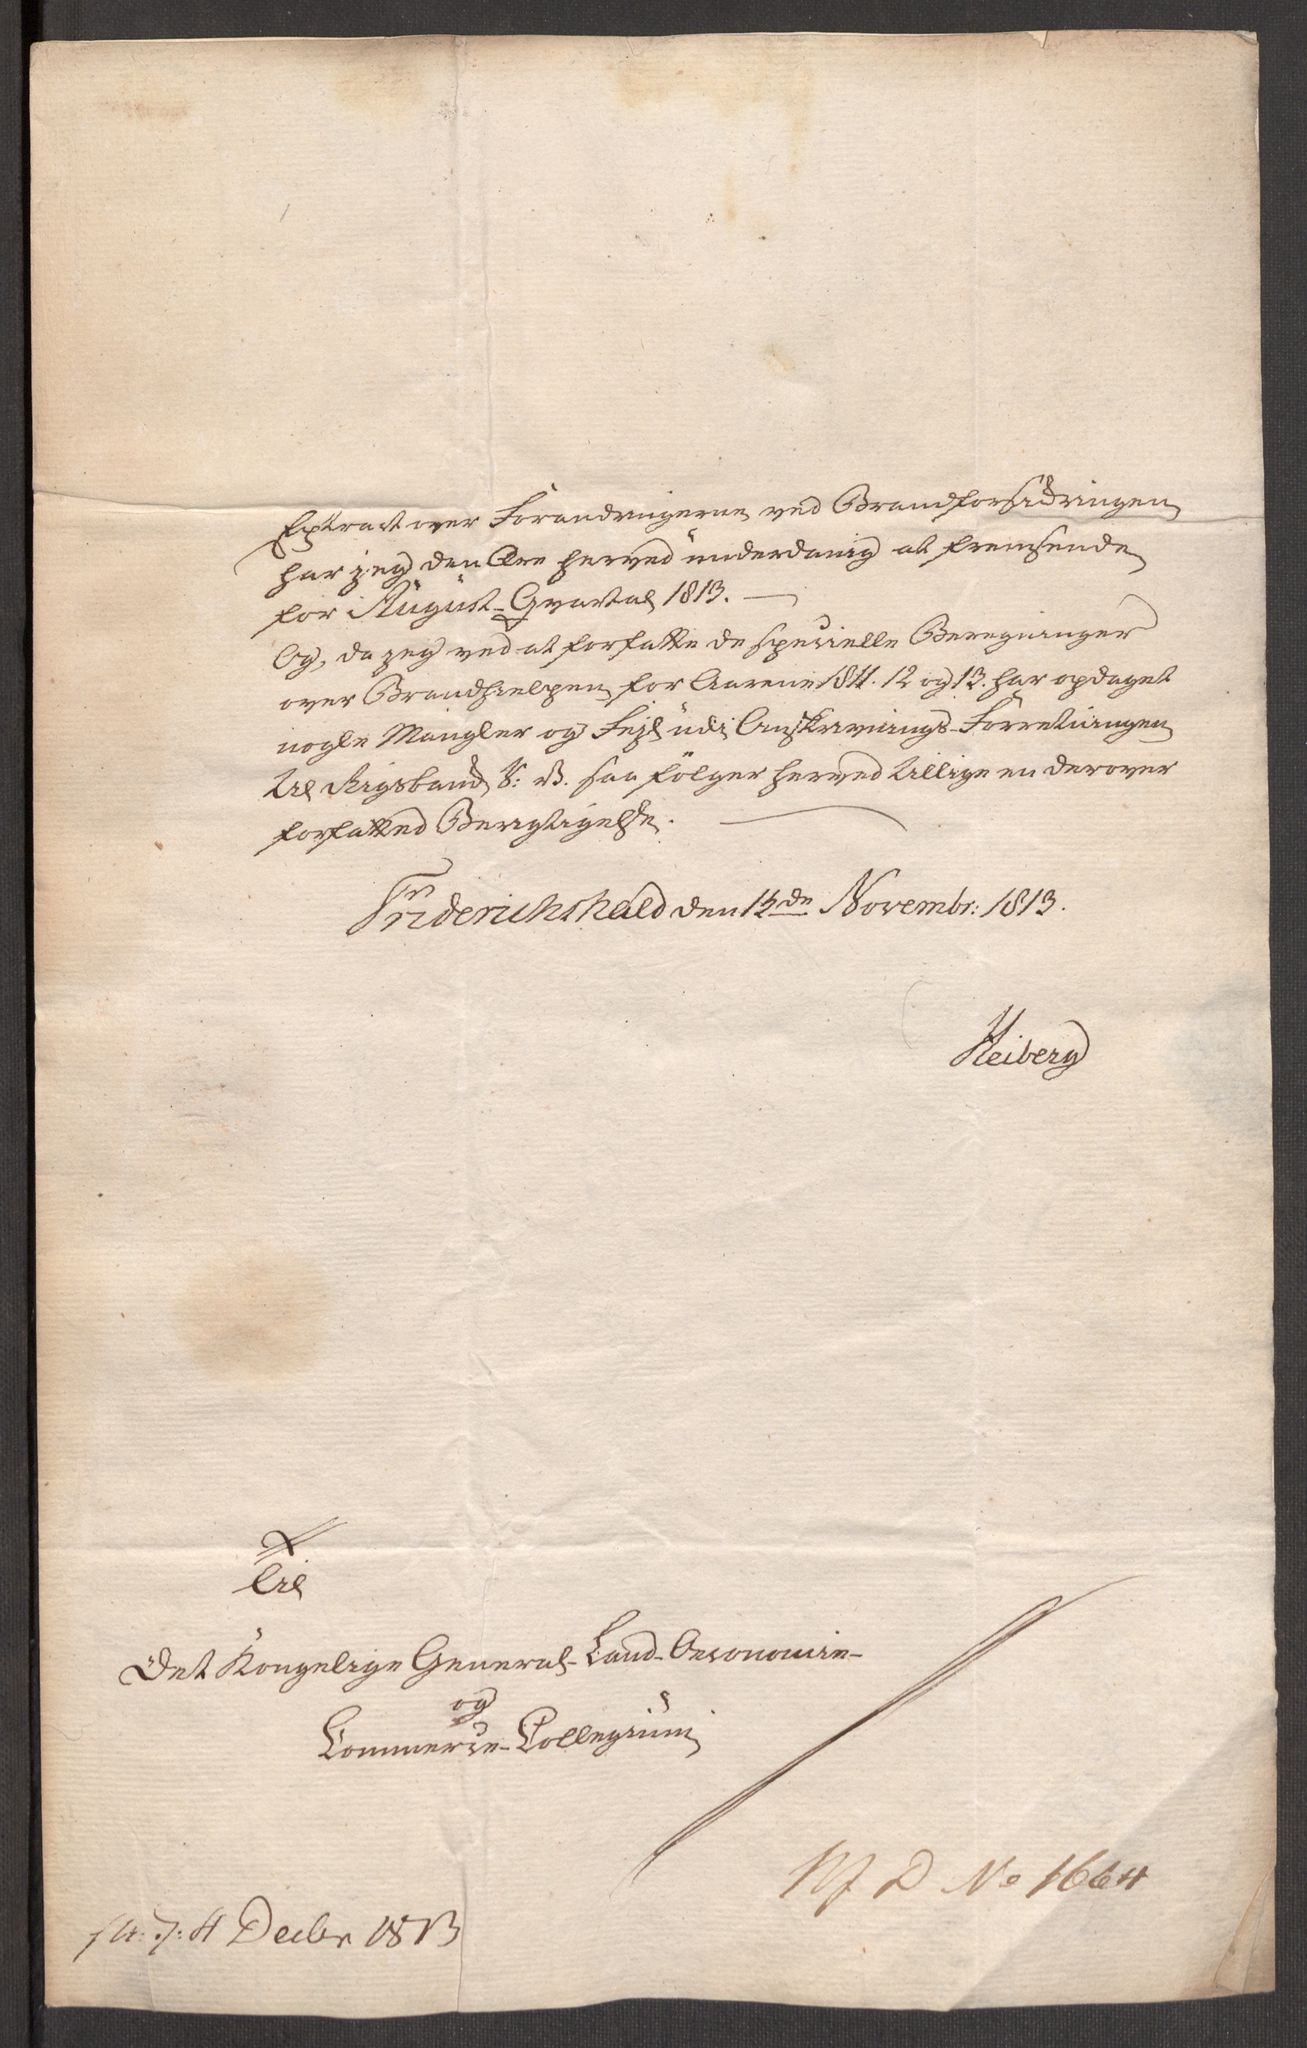 Extract over Forandringerne ved Brandforsickringen
har jeg den Ære herved underdanig at fremsende
for August-Qvartal 1813. —
Og, da jeg ved at forfatte de specielle Beregninger
over Brandhielpen for Aarene 1811. 12 og 13. har opdaget
nogle Mangler og Fejl udi Omskrivnings-Forretningen
til Rigsbank S: V. saa fölger herved tillige en derover
forfatted Berigtigelse.
Friderichshald den 13de Novembr: 1813.
Heiberg
Til
Det Kongelige General-Land-Oeconomie-
og
Commerce-Collegium
No 1664
4 Decbr 1813